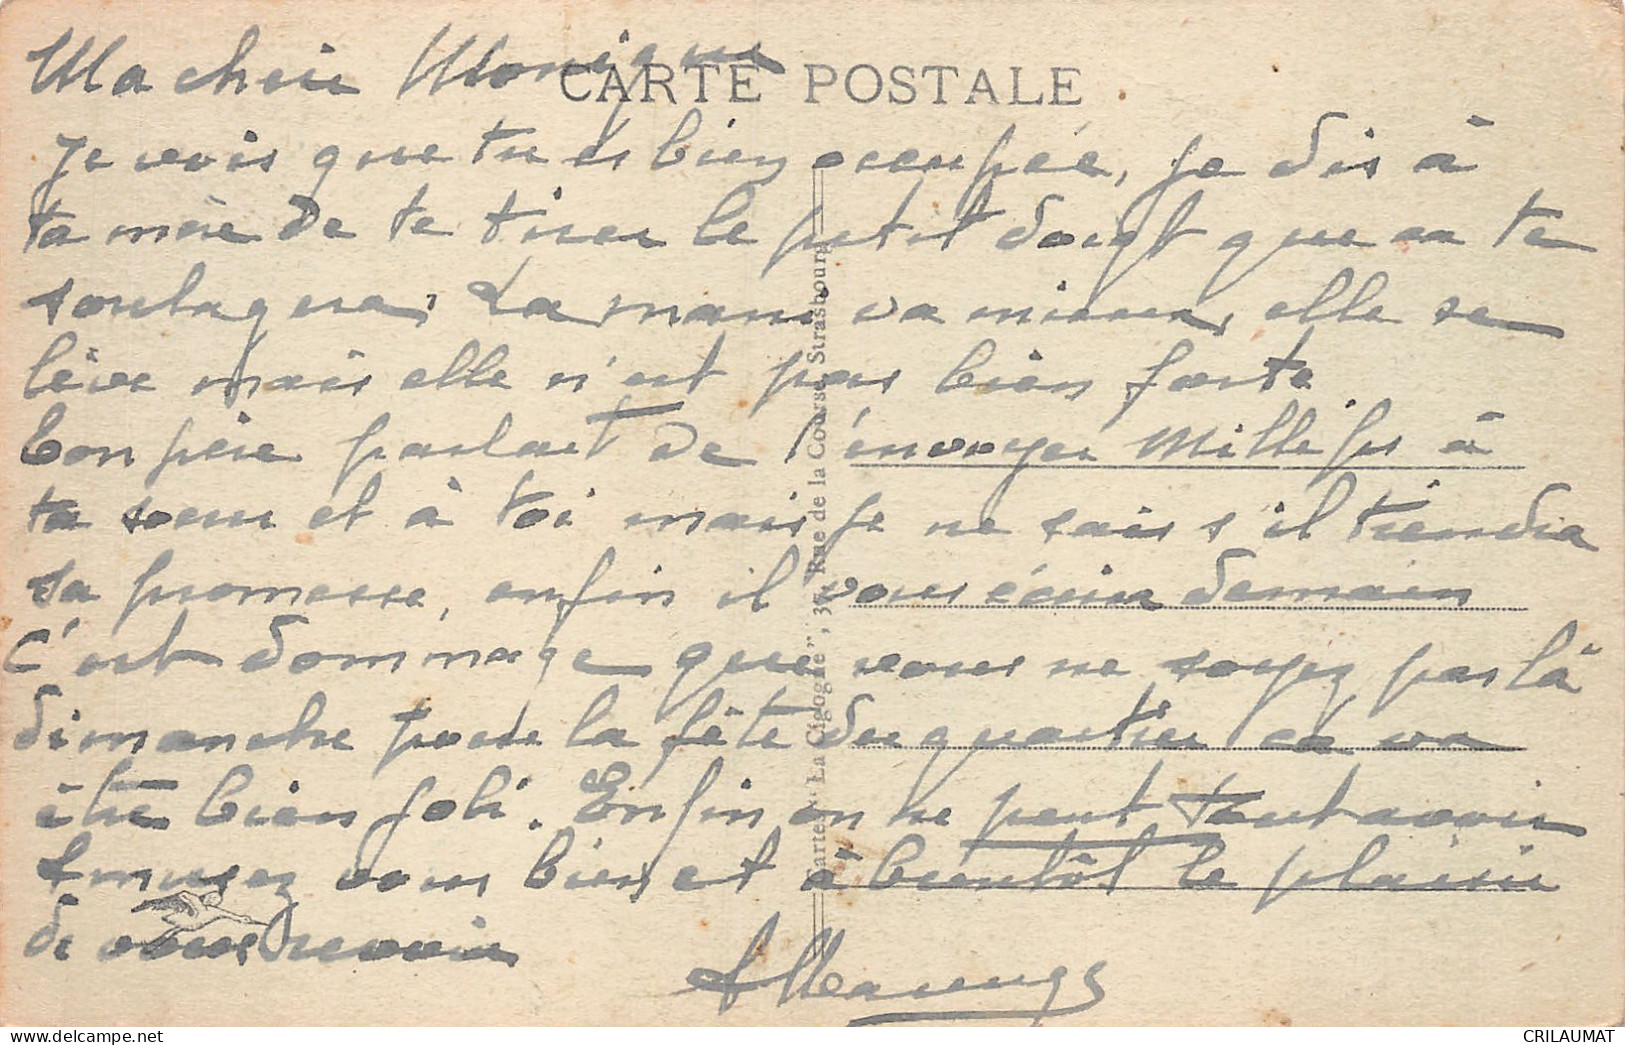 Ma chérie Monique
CARTE POSTALE
Je vois que tu es bien occupée, je dis à
ta mère de te tirer le petit doigt que ca te
soulagera, La mami va mieux, elle se
lève mais elle n'est pas bien forte
Ton père parlait de t'envoyer Mille frs à
ta soeur et à toi mais je ne sais s'il tiendra
sa promesse, enfin il vous écrira demain
C'est dommage que vous ne soyez pas là
dimanche pour la fête du quartier ca va
être bien joli. Enfin on ne peut tout avoir
Amusez vous bien et à bientôt le plaisir
de vous revoir
Cartes "La Cigogne", 37, Rue de la Course, Strasbourg
CRILAUMAT
delcampe.net